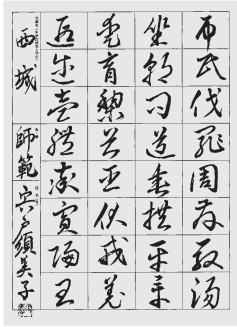 弔民伐罪周發殷湯
坐朝問道垂拱平章
愛育黎首臣伏戎羌
遐迩壹體率賓歸王
西城 師範 宍戸須美子